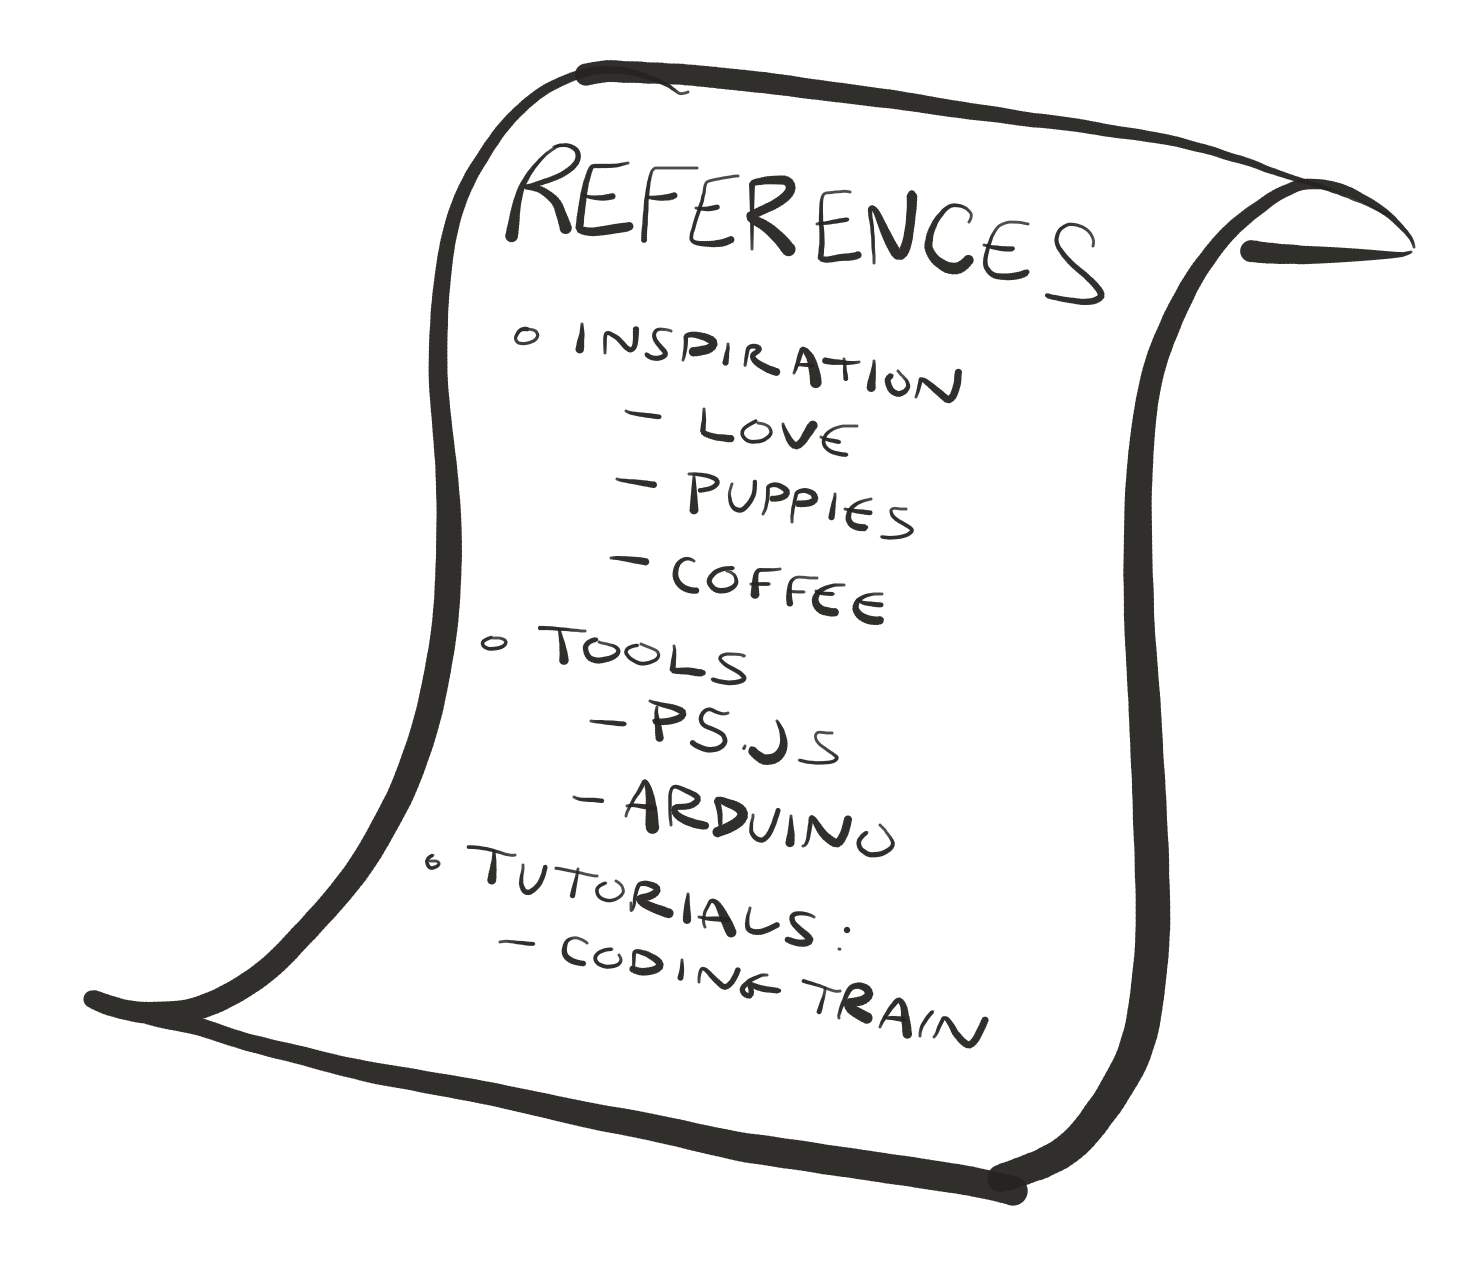 REFERENCES
o INSPIRATION
- LOVE
- PUPPIES
- COFFEE
o TOOLS
- P5.JS
- ARDUINO
o TUTORIALS:
- CODING TRAIN